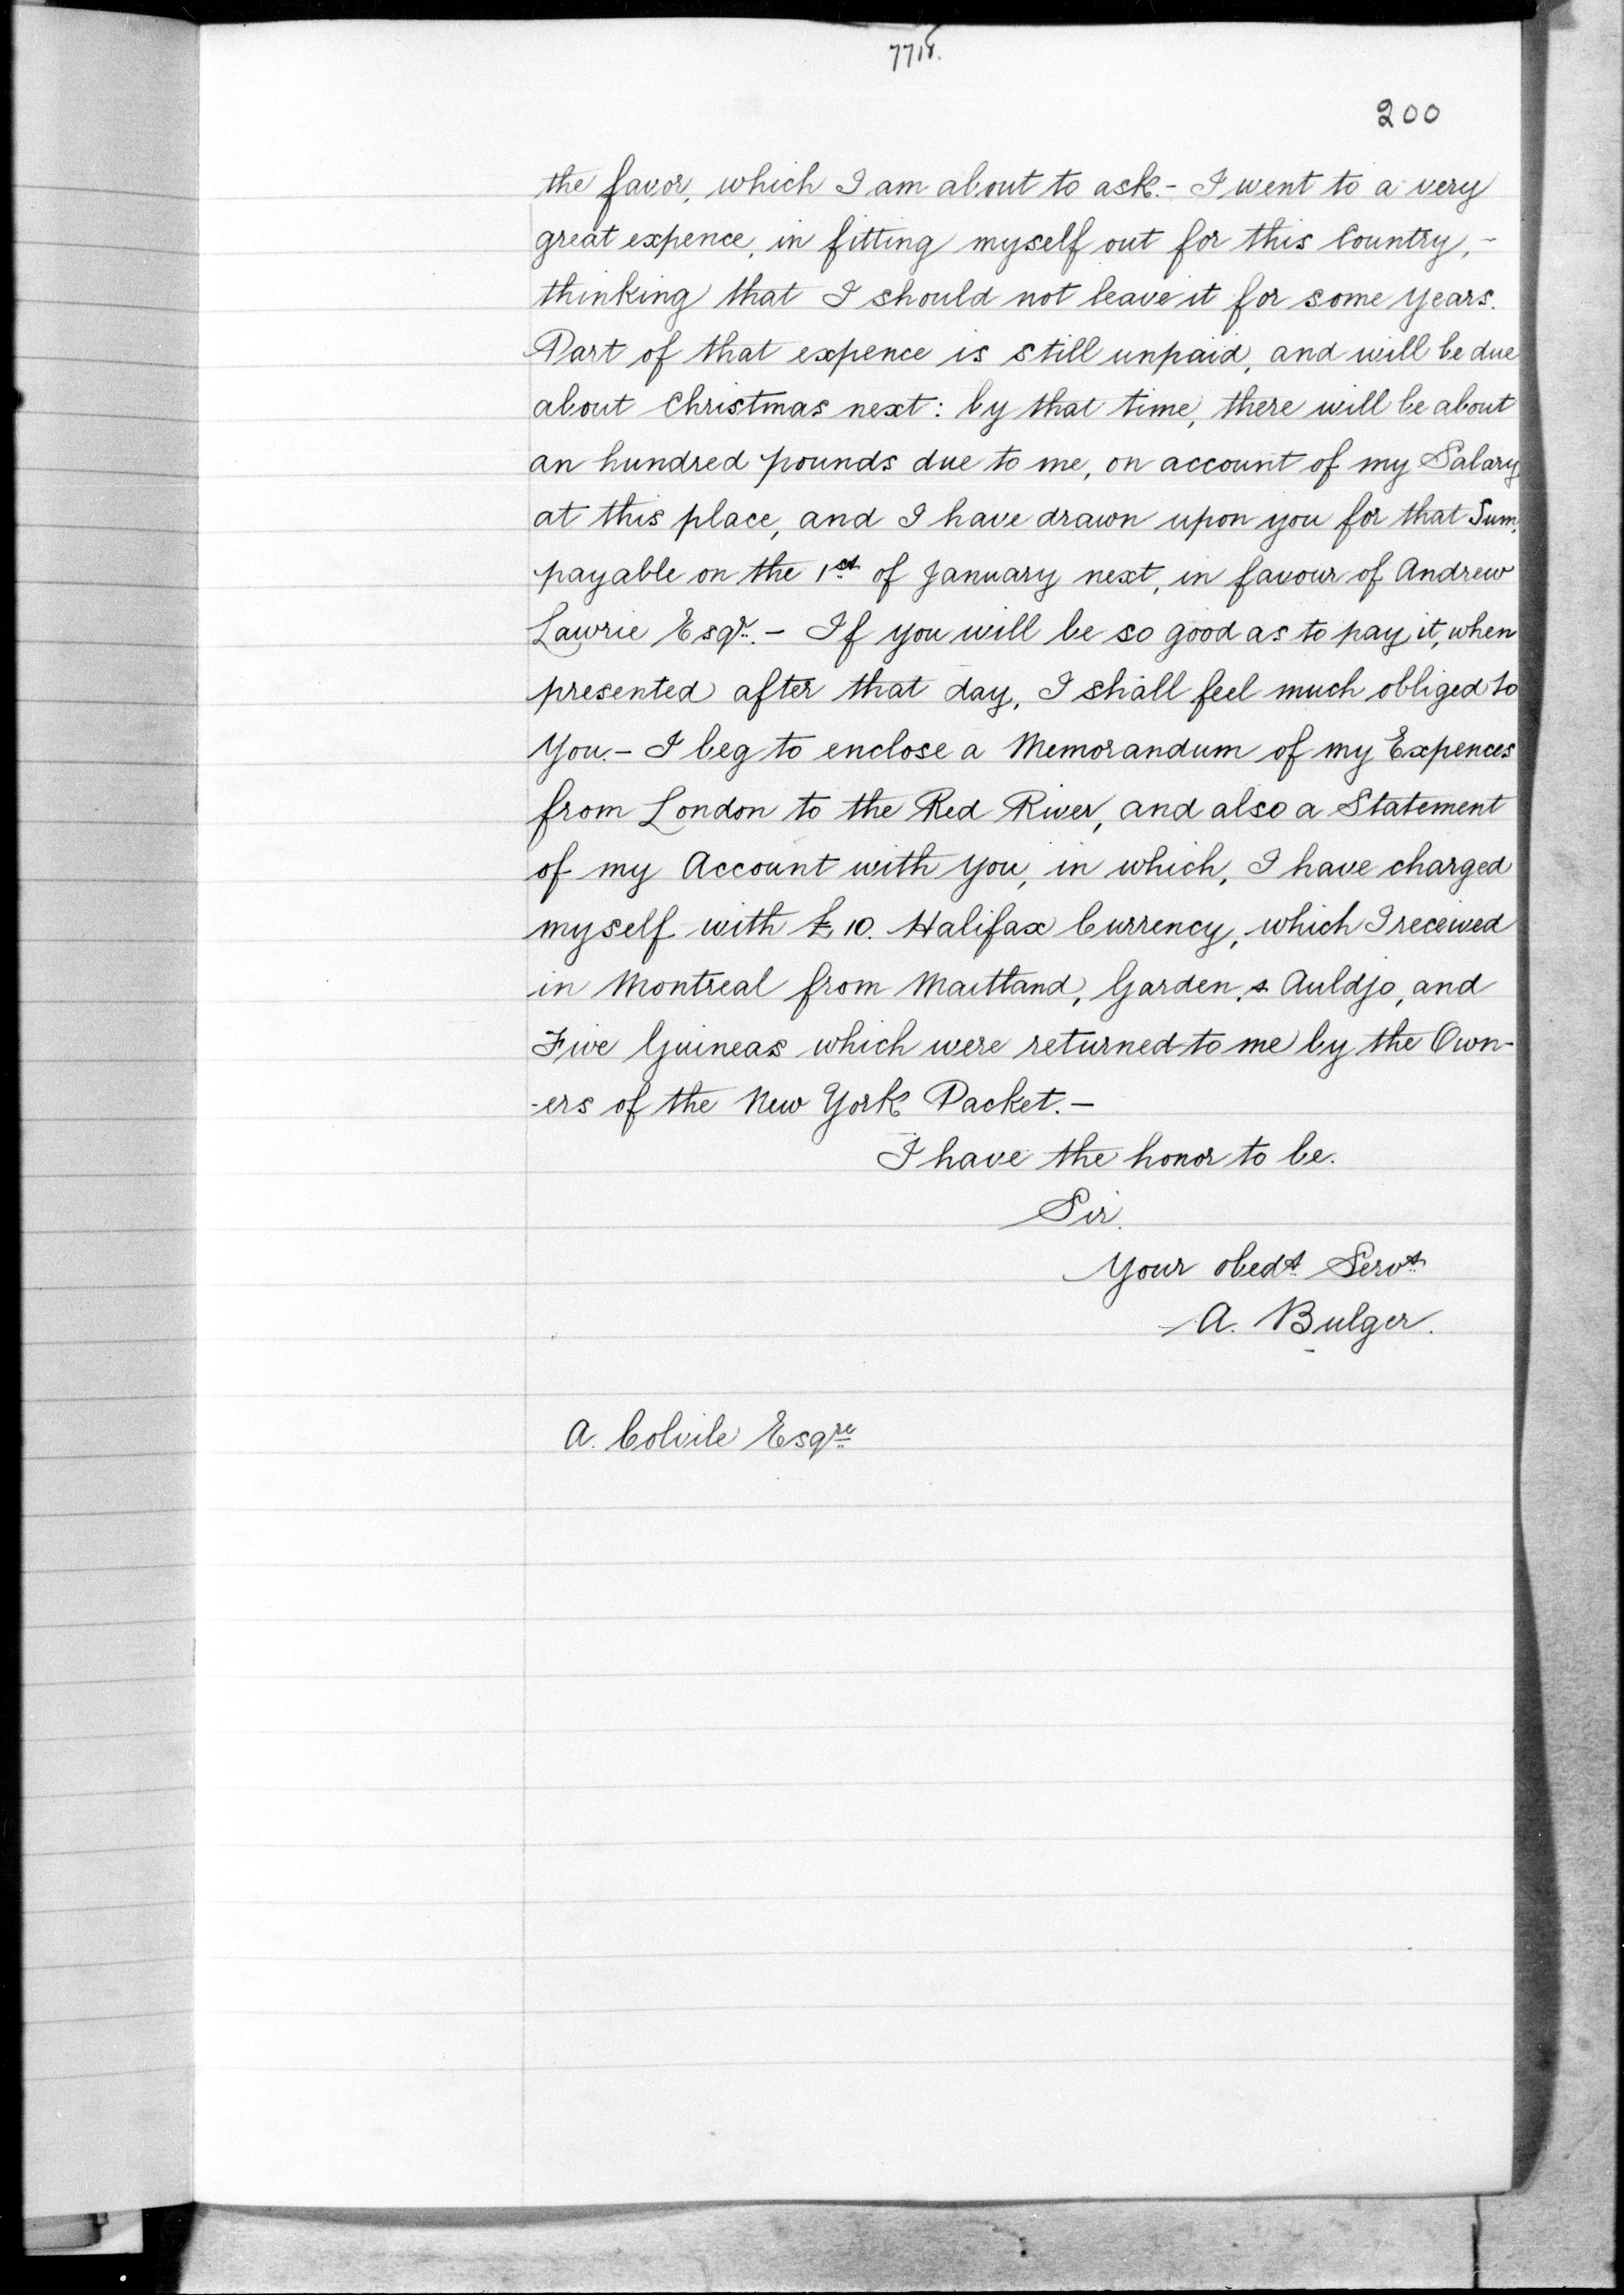 7718.
200
the favor, which I am about to ask.- I went to a very
great expence, in fitting myself out for this Country,-
thinking that I should not leave it for some years.
Part of that expence is still unpaid, and will be due
about Christmas next: by that time, there will be about
an hundred pounds due to me, on account of my Salary
at this place, and I have drawn upon you for that Sum,
payable on the 1st of January next, in favour of Andrew
Lawrie Esqr.- If you will be so good as to pay it, when
presented after that day, I shall feel much obliged to
You.- I beg to enclose a Memorandum of my Expences
from London to the Red River, and also a Statement
of my Account with You, in which, I have charged
myself with £10. Halifax Currency, which I received
in Montreal from Maitland, Garden, & Auldjo, and
Five Guineas which were returned to me by the Own-
-ers of the New York Packet.-
I have the honor to be.
Sir.
Your obedt Servt
A. Bulger.
A. Colvile Esqre